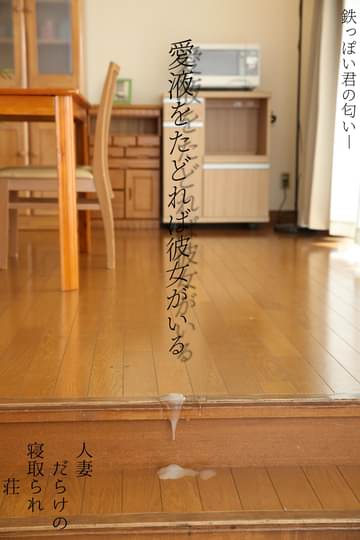 鉄っぽい君の匂いー
愛液をたどれば彼女がいる
人妻
だらけの
寝取られ
荘